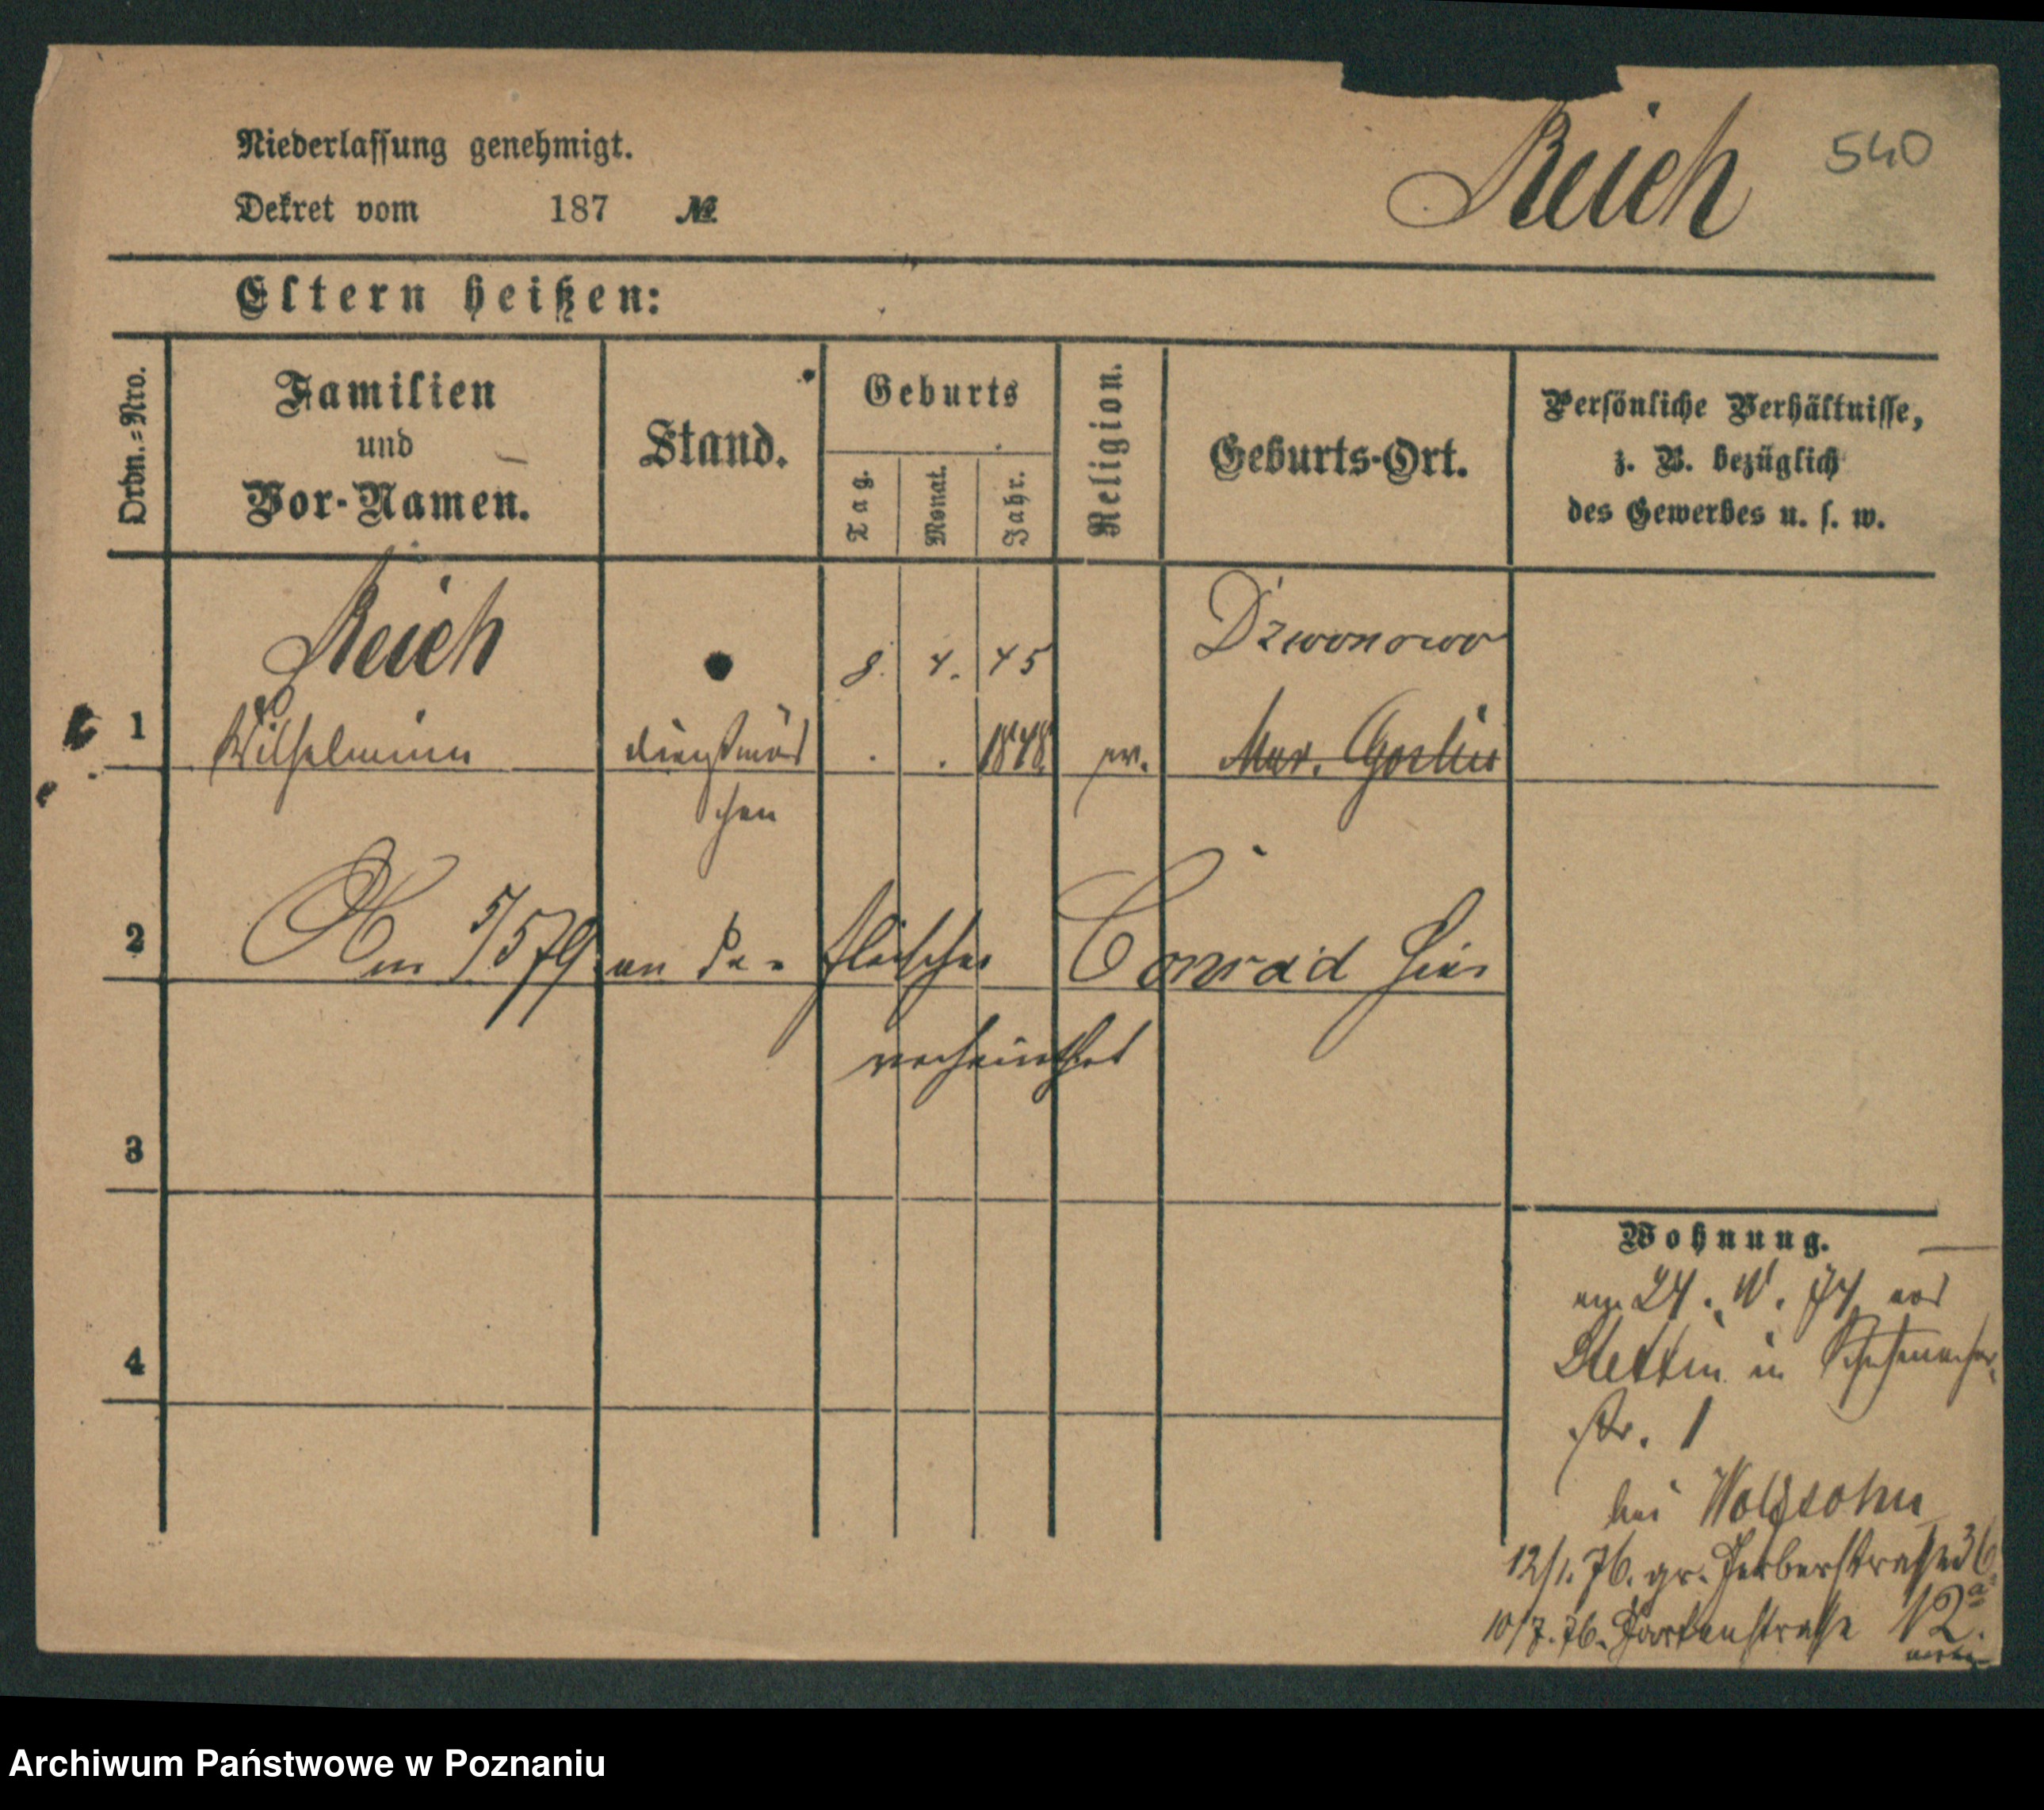 Reich 540
Niederlassung genehmigt.
Dekret vom 187 №
Eltern heißen:
Ordn.=Nro.
Familien
und
Vor-Namen.
Stand.
Geburts
Tag.
Monat.
Jahr.
Religion.
Geburts-Ort.
Persönliche Verhältnisse,
z. B. bezüglich
des Gewerbes u. s. w.
Reich 8. 4. 45 Dzwonowo
1 Wilhelmine dienstmäd 1848 ev. Mur. Goslin
chen
2 Am 5/5 79 an de- fleischer Conrad hier
verheirathet
3
4
Wohnung.
am 24. 74 aus
Stettin in Schuhmacher-
str. 1
bei Wolfsohn
12/1. 76. gr. Gerberstraße 36.
10/7. 76. Gartenstraße 12a.
Archiwum Państwowe w Poznaniu